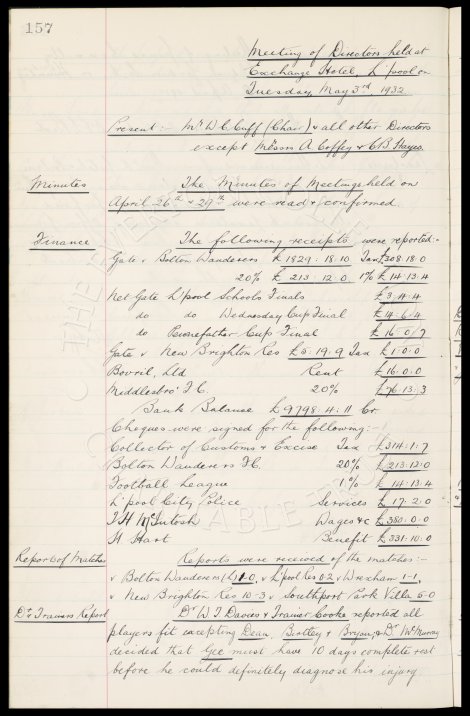 157
Meeting of Directors held at
Exchange Hotel, L'pool on
Tuesday, May 3rd, 1932
Present:- Mr W.C. Cuff (Chair) & all other Directors
except Messrs A Coffey & C.B. Hayes.
Minutes The Minutes of Meetings held on
April 26th & 29th were read & confirmed.
Finance The following receipts were reported:-
Gate v Bolton Wanderers £1829.18.10 Tax £308.18.0
20% £213.12.0 1% £14.13.4
Net Gate L'pool Schools Finals £3.4.4
do do Wednesday Cup Final £14.6.4
do Pennefather Cup Final £16.0.7
Gate v New Brighton Res £5.19.9 Tax £1.0.0
Bovril, Ltd Rent £16.0.0
Middlesbro' F.C. 20% £76.13.3
Bank Balance £9798.4.11 Cr
Cheques were signed for the following:-
Collector of Customs & Excise Tax £314.1.7
Bolton Wanderers F.C. 20% £213.12.0
Football League 1% £14.13.4
L'pool City Police Services £17.2.0
T H McIntosh Wages &c £380.0.0
H Hart Benefit £331.10.0
Report of Matches Reports were received of the matches:-
v Bolton Wanderers (L) 1.0, v L'pool Res 0.2 v Wrexham 1-1,
v New Brighton Res 10-3 v Southport Park Villa 5-0
Dr & Trainers Report Dr W.T. Davies & Trainer Cooke reported all
players fit excepting Dean, Bentley & Bryan, & Dr McMurray
decided that Gee must have 10 days complete rest
before he could definitely diagnose his injury.